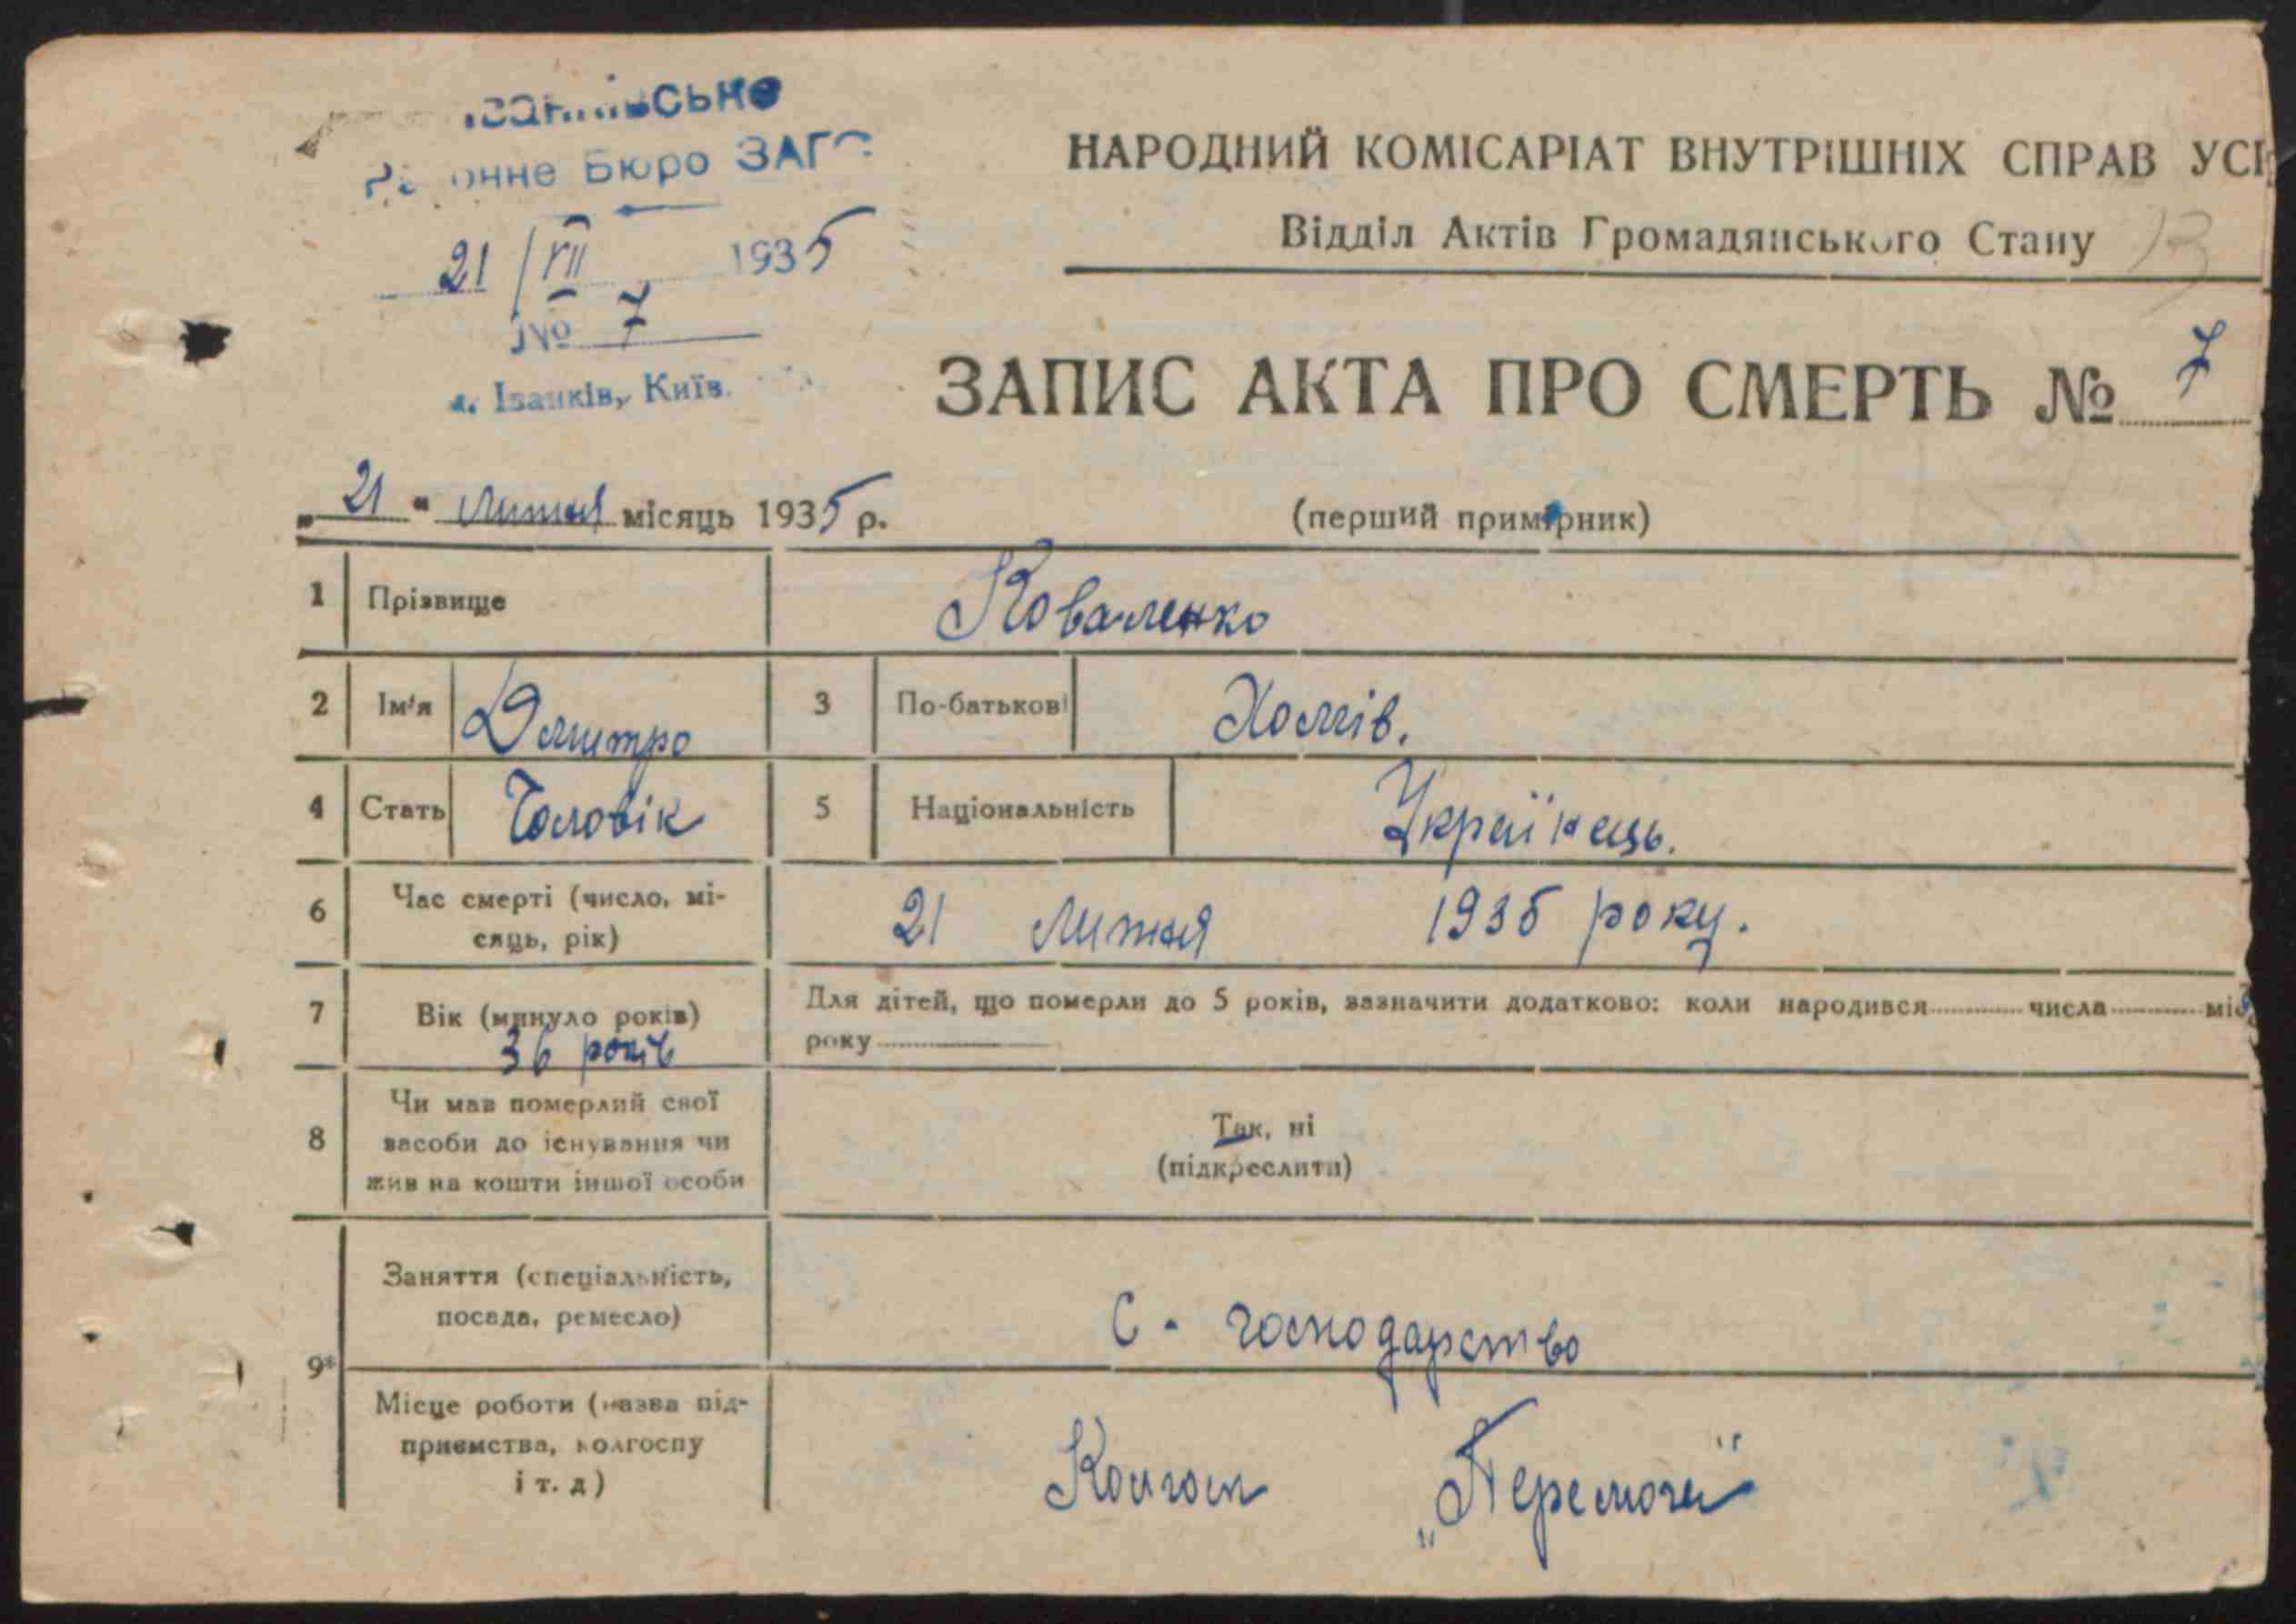 Районне Бюро ЗАГС
21/VII 1935
№ 7
м. Іванків, Київ.
НАРОДНИЙ КОМІСАРІАТ ВНУТРІШНІХ СПРАВ
Відділ Актів Громадянського Стану 13
ЗАПИС АКТА ПРО СМЕРТЬ № 7
„21" липня місяць 1935 р. (перший примірник)
1 Прізвище Коваленко
2 Ім'я Дмитро 3 По-батькові Хомів.
4 Стать Чоловік 5 Національність Українець.
6 Час смерті (число, мі-
сяць, рік) 21 липня 1935 року.
7 Вік (минуло років) 36 років
Для дітей, що померли до 5 років, зазначити додатково: коли народився числа міс
року
8 Чи мав померлий свої
засоби до існування чи
жив на кошти іншої особи
Так, ні
(підкреслити)
9* Заняття (спеціальність,
посада, ремесло) С - господарство
Місце роботи (назва під-
приємства, колгоспу
і т. д) Колгосп „Перемога"